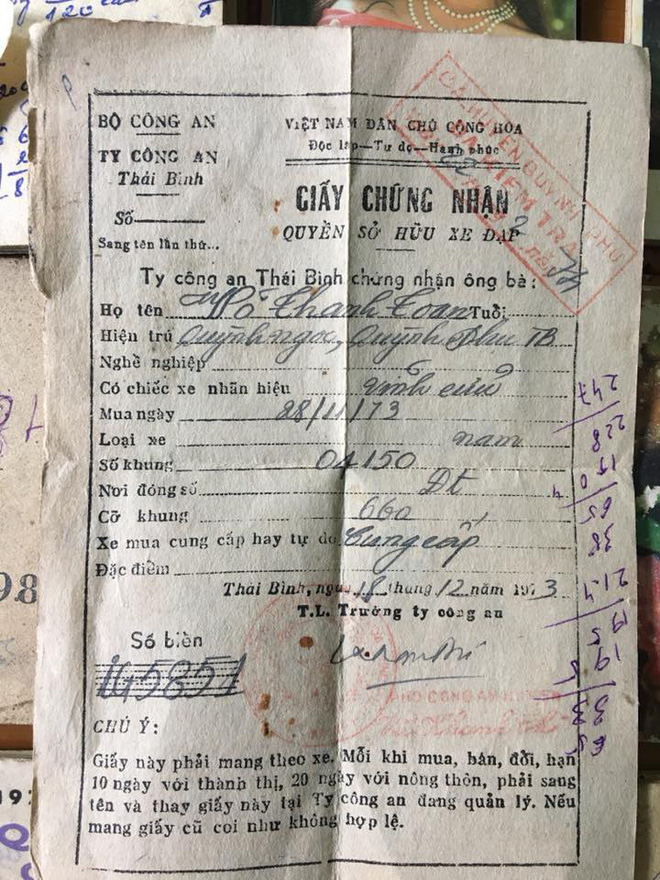 BỘ CÔNG AN
TY CÔNG AN
Thái Bình
Số
Sang tên lần thứ...
VIỆT NAM DÂN CHỦ CỘNG HÒA
Độc lập—Tự do—Hạnh phúc
GIẤY CHỨNG NHẬN
QUYỀN SỞ HỮU XE ĐẠP
Ty công an Thái Bình chứng nhận ông bà:
Họ tên Thanh Toan Tuổi
Hiện trú Quỳnh ngọc, Quỳnh Phụ TB
Nghề nghiệp
Có chiếc xe nhãn hiệu Vĩnh cửu
Mua ngày 28/11/73
Loại xe nam
Số khung 04150
Nơi đóng số Đt
Cỡ khung 660
Xe mua cung cấp hay tự do Cung cấp
Đặc điểm
Thái Bình, ngày 18 tháng 12 năm 1973
T.L. Trưởng ty công an
Số biển
145851
CHÚ Ý:
Giấy này phải mang theo xe. Mỗi khi mua, bán, đổi, hạn
10 ngày với thành thị, 20 ngày với nông thôn, phải sang
tên và thay giấy này tại Ty công an đang quản lý. Nếu
mang giấy cũ coi như không hợp lệ.
CA HUYỆN QUỲNH PHỤ
KIỂM TRA
247
228
65
38
120
98